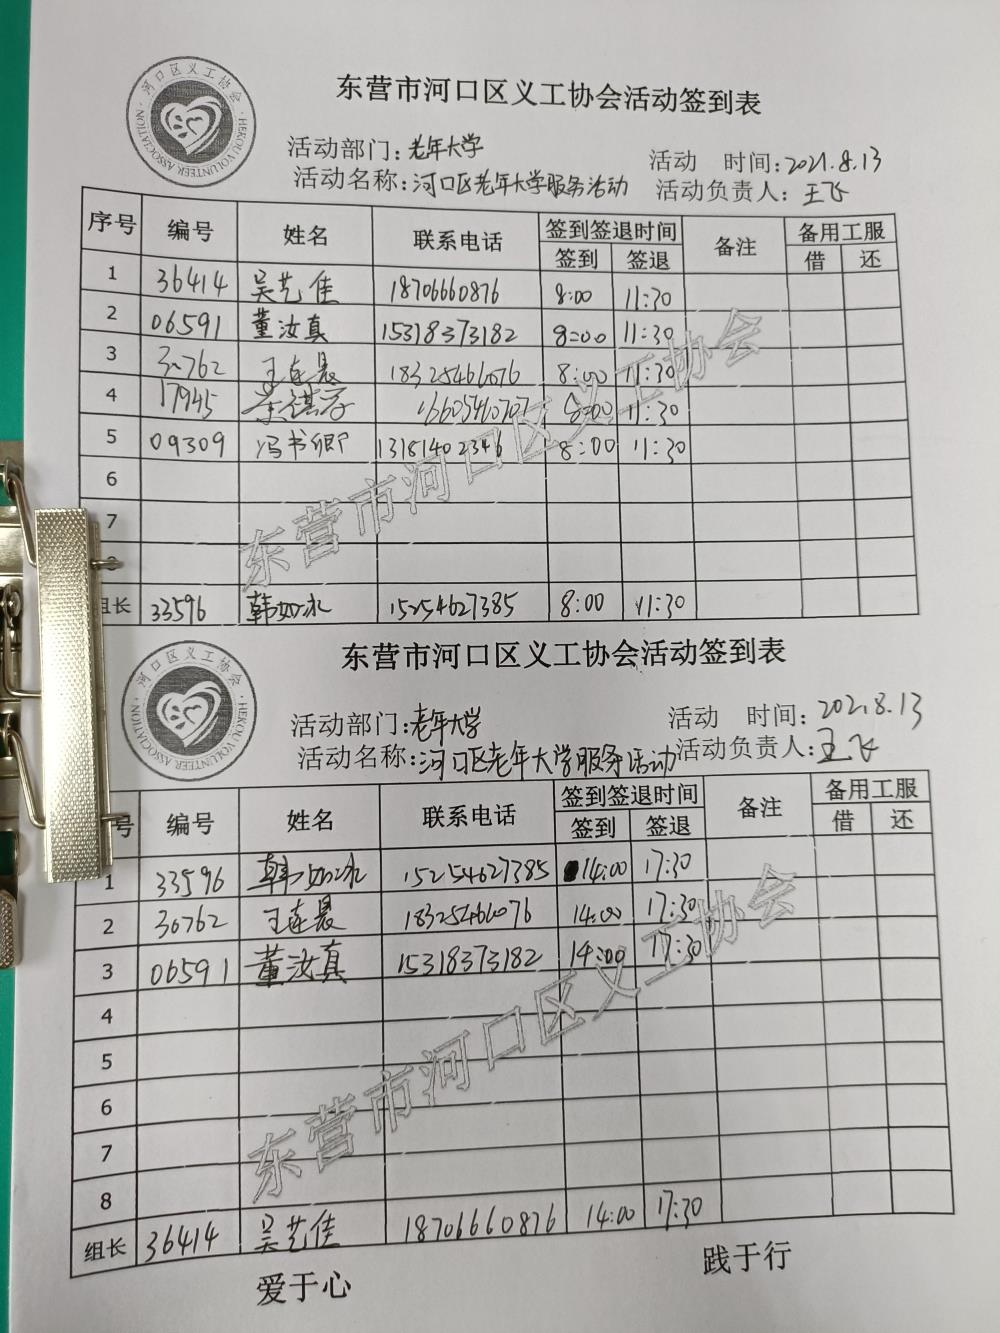 东营市河口区义工协会活动签到表
河口区义工协会
HEKOU VOLUNTEER ASSOCIATION
活动部门：老年大学 活动 时间：2021.8.13
活动名称：河口区老年大学服务活动 活动负责人：王飞
序号 编号 姓名 联系电话 签到签退时间 备注 备用工服
签到 签退 借 还
1 36414 吴艺佳 18706660876 8:00 11:30
2 06591 董汝真 15318373182 8:00 11:30
3 30762 王连晨 18325466076 8:00 11:30
4 17945 16605460707 8:00 11:30
5 09309 冯书卿 13181402346 8:00 11:30
6
7
组长 33596 韩如冰 15254627385 8:00 11:30
东营市河口区义工协会
东营市河口区义工协会活动签到表
河口区义工协会
HEKOU VOLUNTEER ASSOCIATION
活动部门：老年大学 活动 时间：2021.8.13
活动名称：河口区老年大学服务活动 活动负责人：王飞
号 编号 姓名 联系电话 签到签退时间 备注 备用工服
签到 签退 借 还
1 33596 韩如冰 15254627385 14:00 17:30
2 30762 王连晨 18325466076 14:00 17:30
3 06591 董汝真 15318373182 14:00 17:30
4
5
6
7
8
组长 36414 吴艺佳 18706660876 14:00 17:30
东营市河口区义工协会
爱于心 践于行